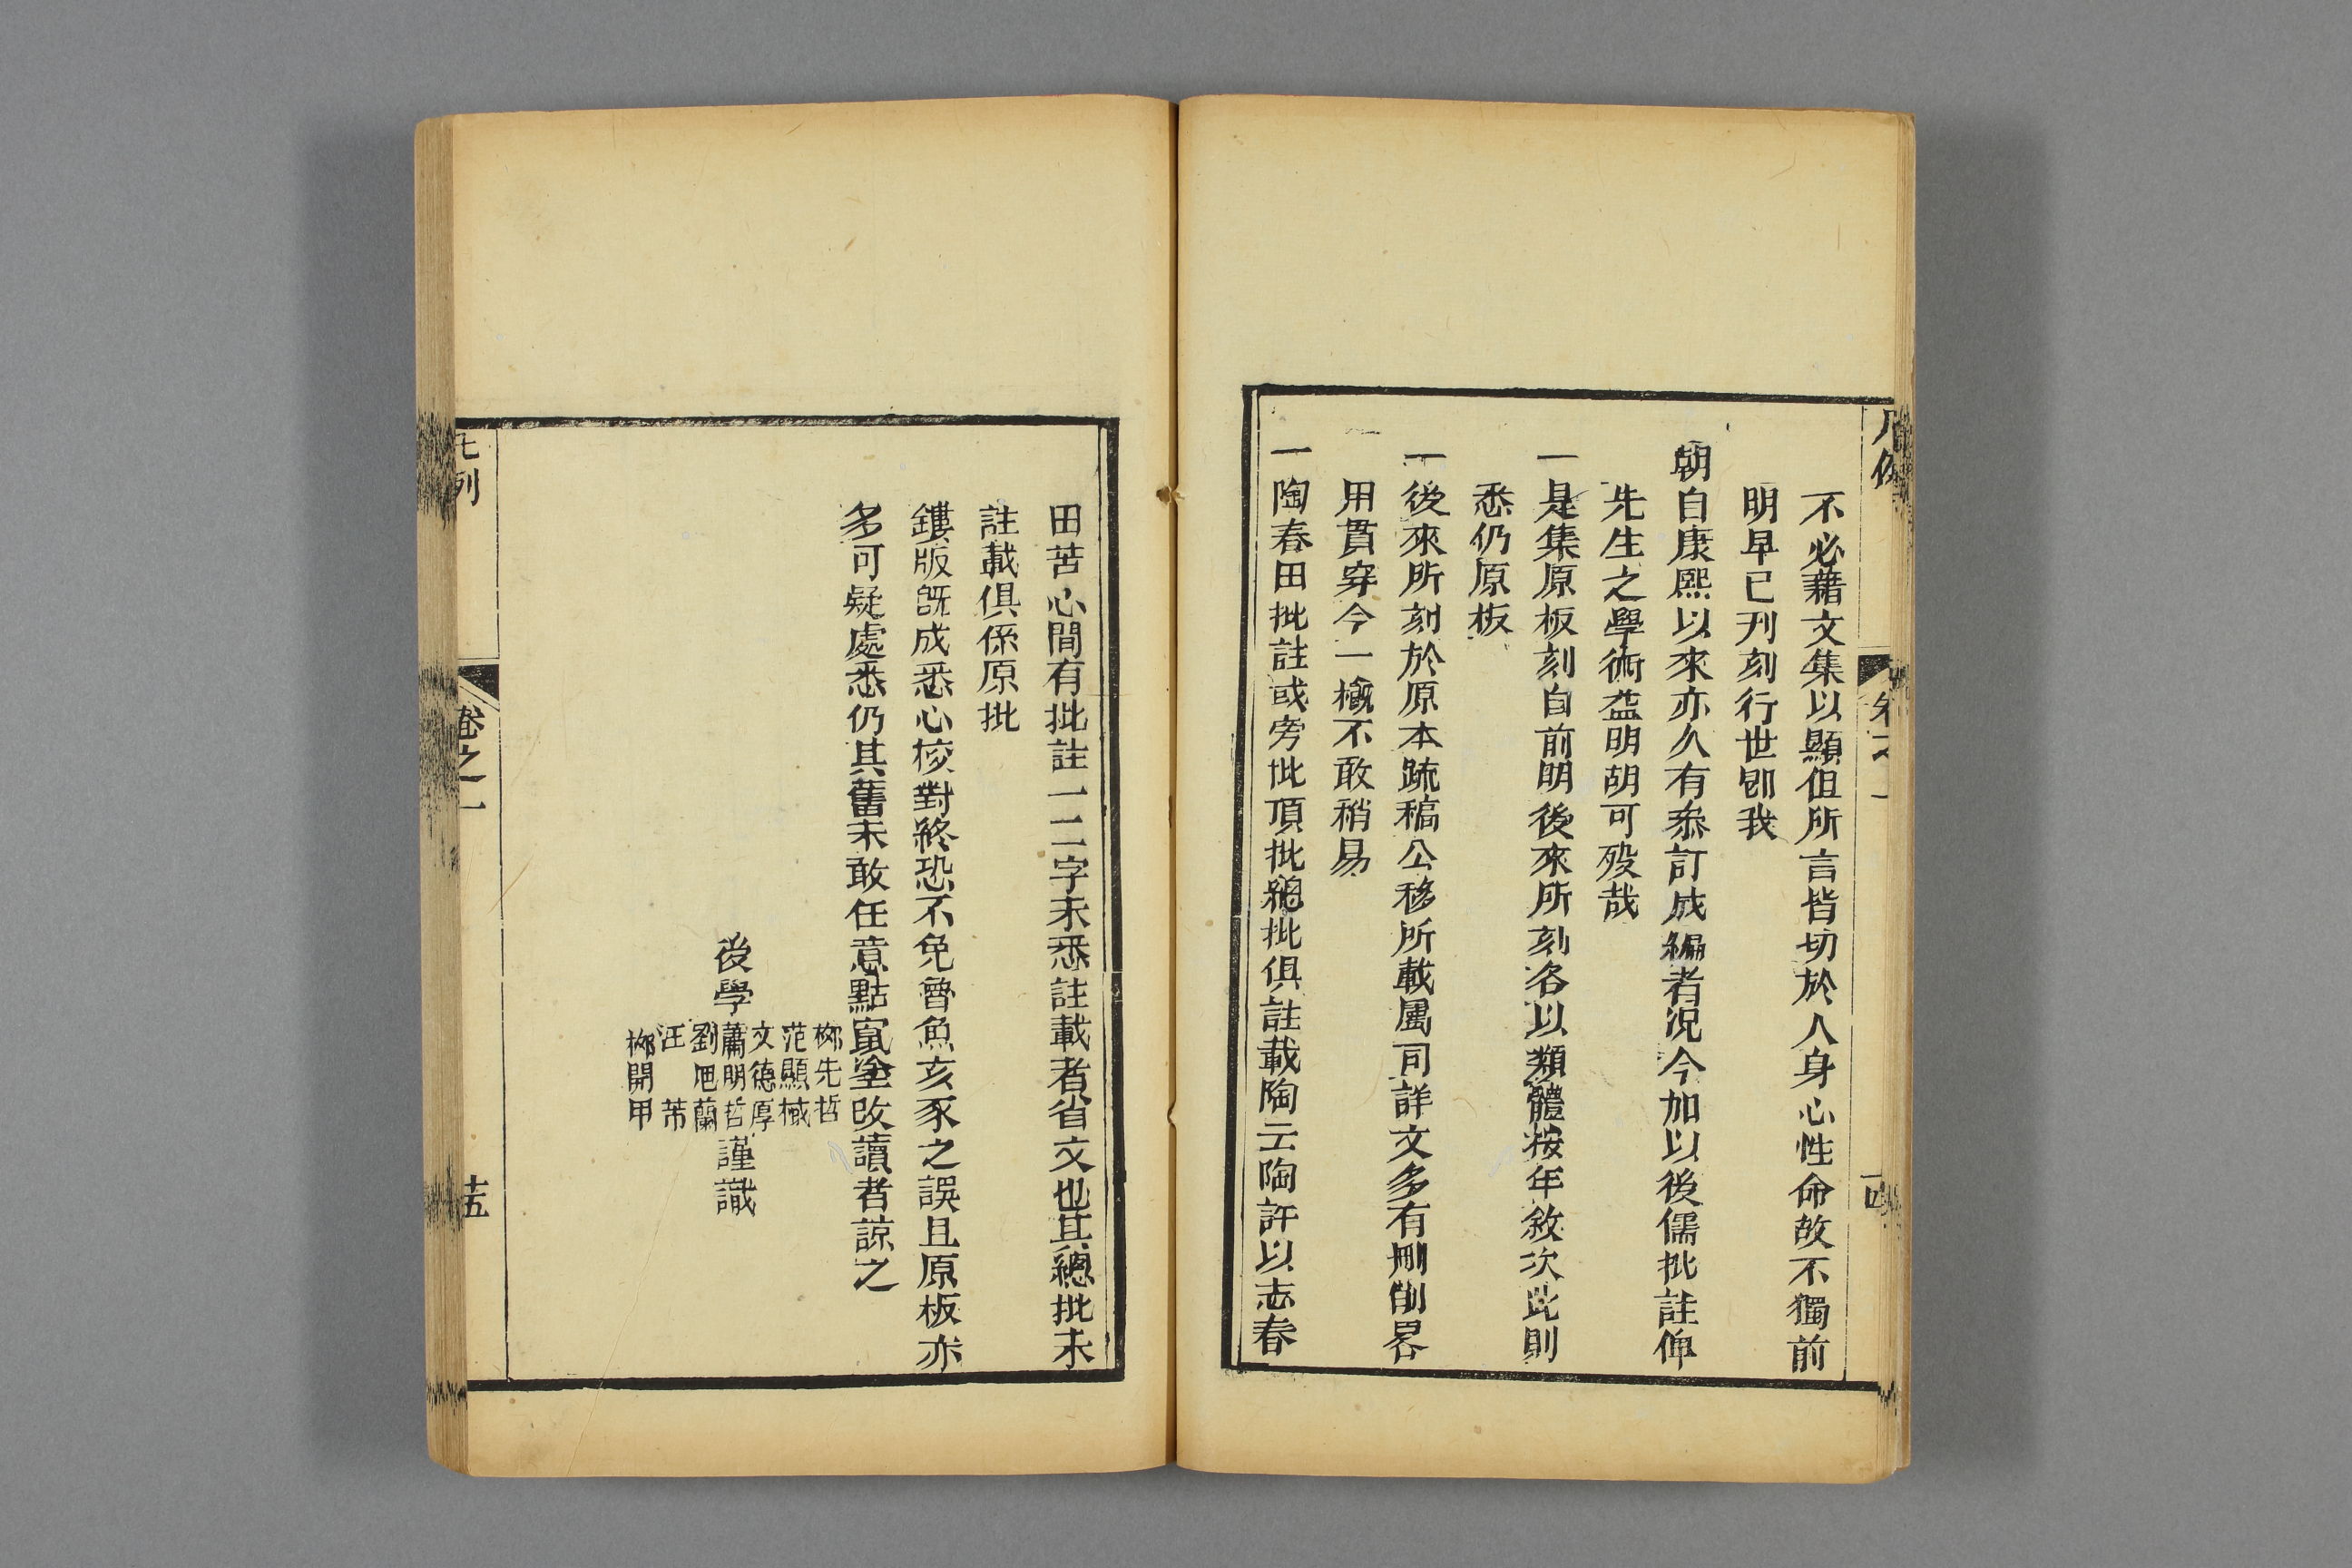 不必藉文集以顯但所言皆切於人身心性命故不獨前
明早已刋刻行世卽我
朝自康熙以來亦久有叅訂成編者况今加以後儒批註俾
先生之學術益明胡可歿哉
一是集原板刻自前明後來所刻各以類體按年敘次此則
悉仍原板
一後來所刻於原本疏稿公移所載屬司詳文多有刪削畧
用貫穿今一槪不敢稍易
一陶春田批註或旁批頂批總批俱註載陶云陶評以志春
田苦心間有批註一二字未悉註載者省文也其總批未
註載俱係原批
鏤版旣成悉心校對終恐不免魯魚亥豕之誤且原板亦
多可疑處悉仍其舊未敢任意點竄塗改讀者諒之
後學
柳先哲
范顯棫
文德厚
蕭明哲
劉
蘭
汪芾
柳開甲
謹識
卷之一
十五